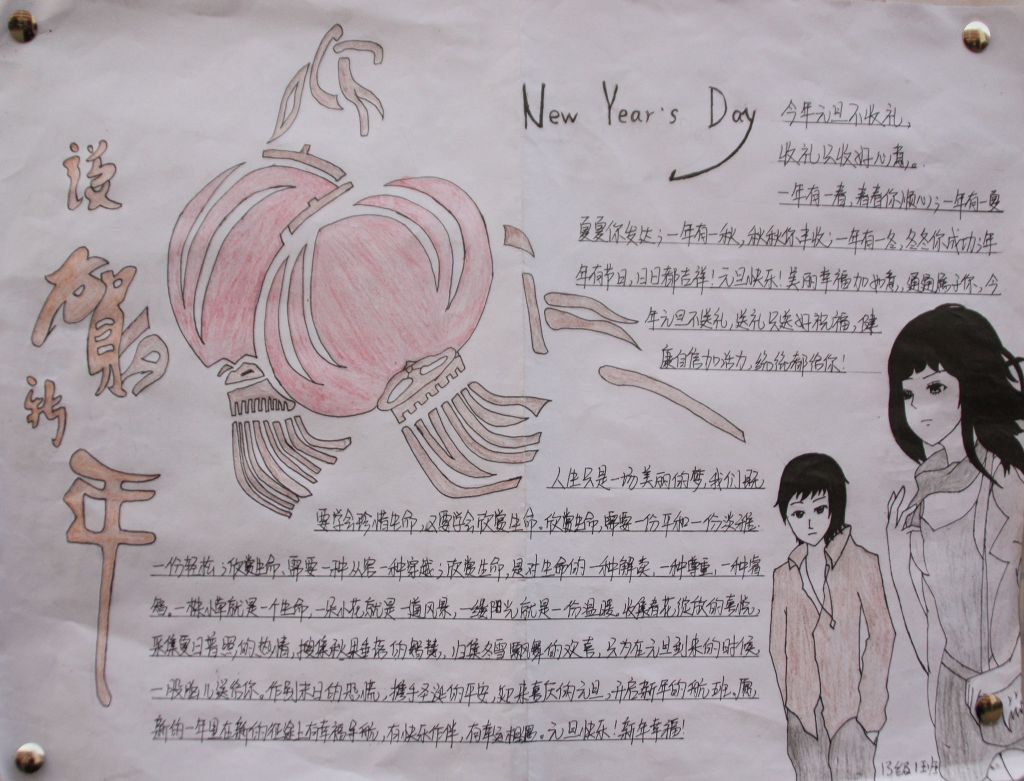 贺
新
年
New Year's Day
今年元旦不收礼,
收礼只收好心意。
一年有一春,春春你顺心;一年有一夏
夏夏你发达;一年有一秋,秋秋你丰收;一年有一冬,冬冬你成功;年
年有节日,日日都吉祥!元旦快乐!美丽幸福加如意,通通属于你,今
年元旦不送礼,送礼只送好祝福,健
康自信加活力,统统都给你!
人生只是一场美丽的梦,我们既
要学会珍惜生命,又要学会欣赏生命。欣赏生命,需要一份平和一份淡雅
一份轻松;欣赏生命,需要一种从容一种穿越;欣赏生命,是对生命的一种解读,一种尊重,一种
一株小草就是一个生命,一朵小花就是一道风景,一缕阳光就是一份温暖。收集春花绽放的喜悦,
采集夏日普照的热情,搜集秋果垂落的智慧,归集冬雪飘舞的欢喜,只为在元旦到来的时候
一股脑儿送给你。作别末日的恐慌,携手圣诞的平安,迎来喜庆的元旦,开启新年的航班。愿
新的一年里在新的征途上有幸福导航,有快乐作伴,有幸运相随。元旦快乐!新年幸福!
13级1班